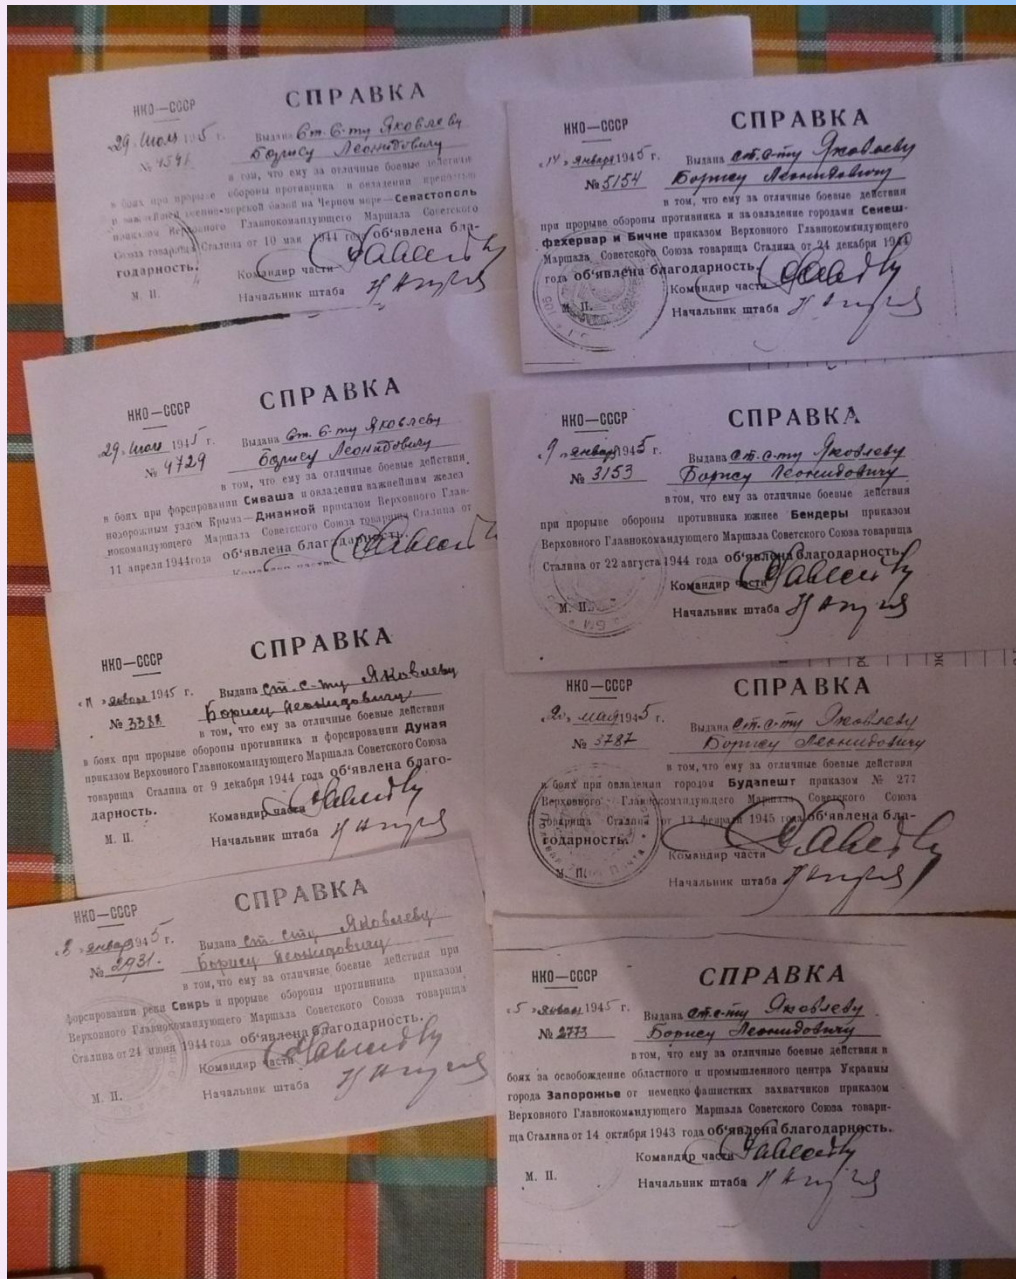 НКО—СССР
СПРАВКА
29 Июля 1945 г.
Выдана Ст. С-ту Яковлеву
№ 4541
Борису Леонидовичу
в том, что ему за отличные боевые действия
в боях при прорыве обороны противника и овладении крепостью
и важнейшей военно-морской базой на Черном море—Севастополь
приказом Верховного Главнокомандующего Маршала Советского
Союза товарища Сталина от 10 мая 1944 года об'явлена бла-
годарность.
Командир части
М. П.
Начальник штаба
НКО—СССР
СПРАВКА
„14" января 1945 г.
Выдана ст. с-ту Яковлеву
№ 5154
Борису Леонидовичу
в том, что ему за отличные боевые действия
при прорыве обороны противника и за овладение городами Секеш-
фехервар и Бичке приказом Верховного Главнокомандующего
Маршала Советского Союза товарища Сталина от 24 декабря 1944
года об'явлена благодарность.
Командир части
М. П.
Начальник штаба
НКО—СССР
СПРАВКА
29 Июля 1945 г.
Выдана Ст. С-ту Яковлеву
№ 4729
Борису Леонидовичу
в том, что ему за отличные боевые действия
в боях при форсировании Сиваша и овладении важнейшим желез
нодорожным узлом Крыма—Джанкой приказом Верховного Глав-
нокомандующего Маршала Советского Союза товарища Сталина от
11 апреля 1944 года об'явлена благодарность.
Командир части
НКО—СССР
СПРАВКА
„9" января 1945 г.
Выдана ст. с-ту Яковлеву
№ 3153
Борису Леонидовичу
в том, что ему за отличные боевые действия
при прорыве обороны противника южнее Бендеры приказом
Верховного Главнокомандующего Маршала Советского Союза товарища
Сталина от 22 августа 1944 года об'явлена благодарность.
Командир части
М. П.
Начальник штаба
НКО—СССР
СПРАВКА
„11" января 1945 г.
Выдана ст. с-ту Яковлеву
№ 3388
Борису Леонидовичу
в том, что ему за отличные боевые действия
в боях при прорыве обороны противника и форсировании Дуная
приказом Верховного Главнокомандующего Маршала Советского Союза
товарища Сталина от 9 декабря 1944 года об'явлена благо-
дарность.
Командир части
М. П.
Начальник штаба
НКО—СССР
СПРАВКА
„20" мая 1945 г.
Выдана ст. с-ту Яковлеву
№ 3787
Борису Леонидовичу
в том, что ему за отличные боевые действия
в боях при овладении городом Будапешт приказом № 277
Верховного Главнокомандующего Маршала Советского Союза
товарища Сталина от 13 февраля 1945 года об'явлена бла-
годарность.
Командир части
М. П.
Начальник штаба
НКО—СССР
СПРАВКА
января 1945 г.
Выдана Ст. сту Яковлеву
№ 2931.
Борису Леонидовичу
в том, что ему за отличные боевые действия при
форсировании реки Свирь и прорыве обороны противника приказом
Верховного Главнокомандующего Маршала Советского Союза товарища
Сталина от 24 июня 1944 года об'явлена благодарность.
Командир части
М. П.
Начальник штаба
НКО—СССР
СПРАВКА
„5" января 1945 г.
Выдана ст. с-ту Яковлеву
№ 2773
Борису Леонидовичу
в том, что ему за отличные боевые действия в
боях за освобождение областного и промышленного центра Украины
города Запорожье от немецко фашистких захватчиков приказом
Верховного Главнокомандующего Маршала Советского Союза товари-
ща Сталина от 14 октября 1943 года об'явлена благодарность.
Командир части
М. П.
Начальник штаба